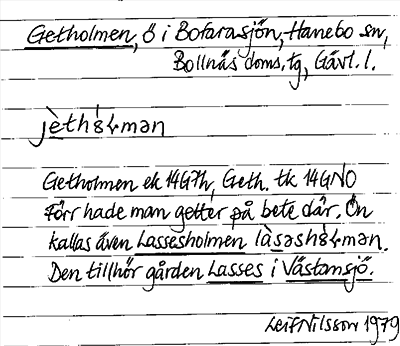 Getholmen, ö i Bofarasjön, Hanebo sn,
Bollnäs doms. tg, Gävl. l.
jèthɘ̀ɫmən
Getholmen ek 14G7h, Geth. tk 14GNO
Förr hade man getter på bete där. Ön
kallas även Lassesholmen
Den tillhör gården Lasses i Västansjö.
Leif Nilsson 1979